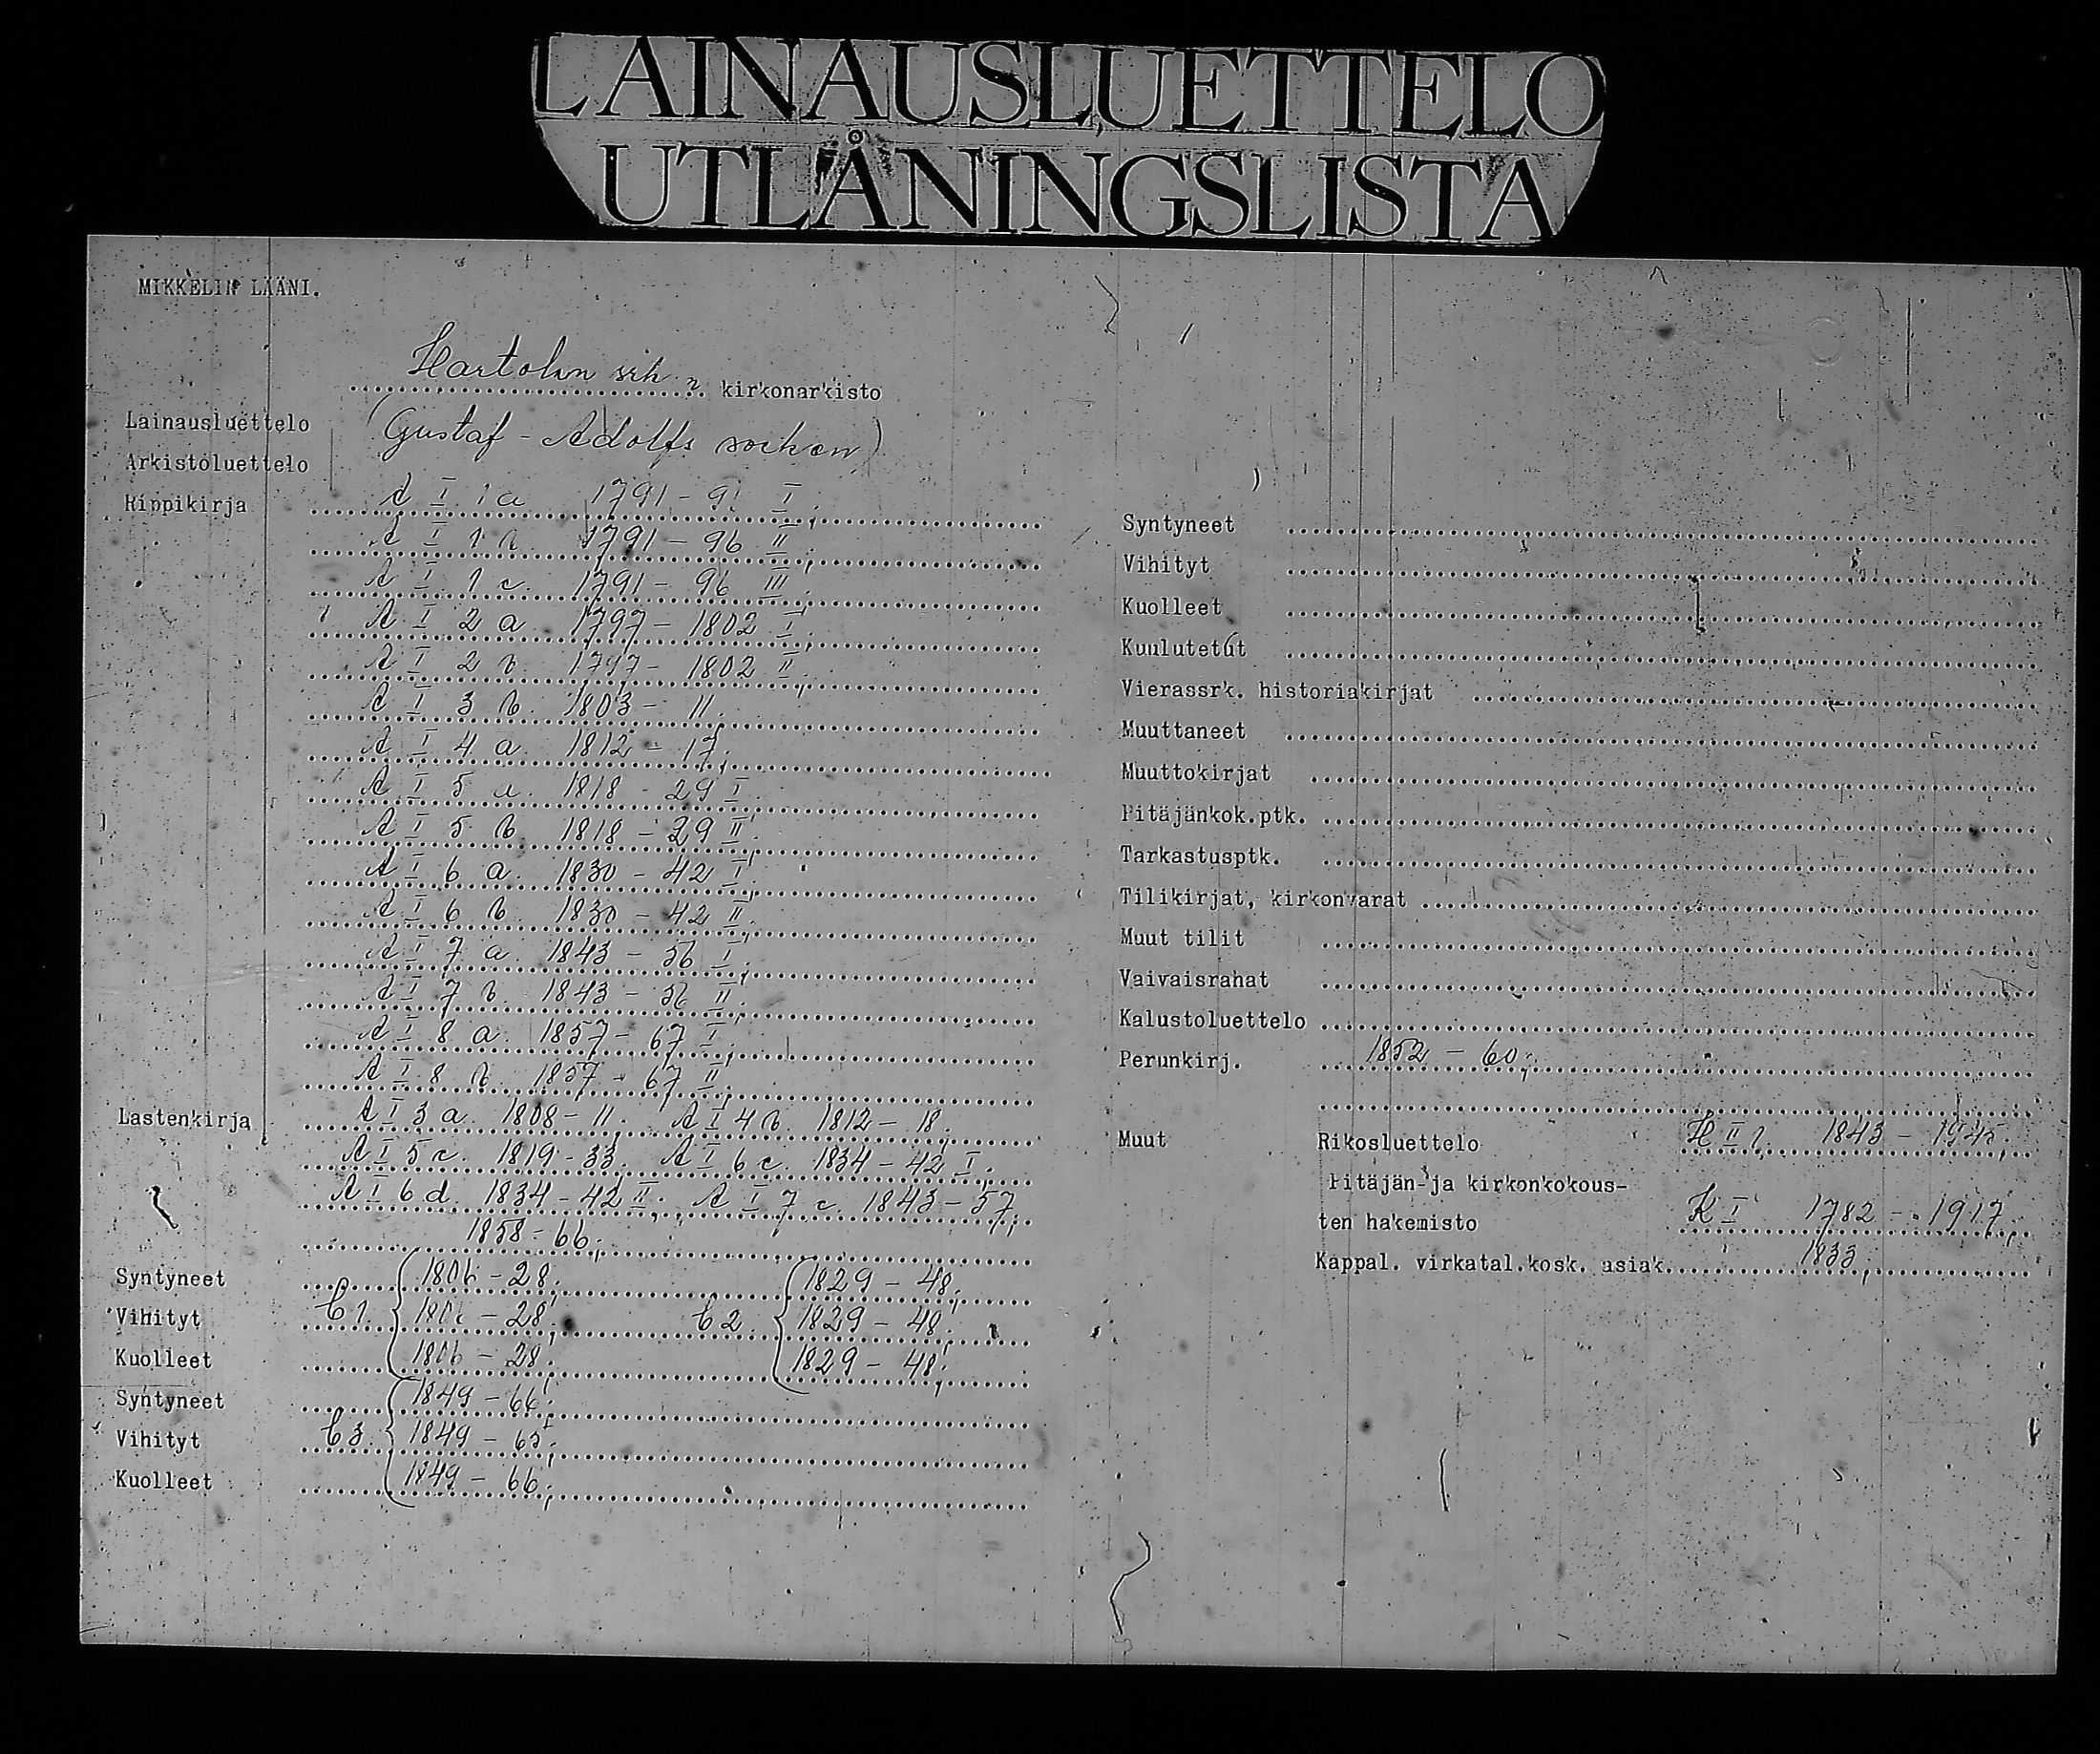 LAINAUSLUETTELO
UTLÅNINGSLISTA
MIKKELIN LÄÄNI.
Hartolan srk:n kirkonarkisto
Lainausluettelo
(Gustaf-Adolfs socken)
Arkistoluettelo
Rippikirja A I 1 a 1791-9 I;
A I 1 b. 1791-96 II;
A I 1 c. 1791-96 III;
A I 2 a 1797-1802 I;
A I 2 b 1797-1802 II;
A I 3 b. 1803-11;
A I 4 a. 1812-17;
A I 5 a. 1818-29 I;
A I 5 b. 1818-29 II;
A I 6 a. 1830-42 I;
A I 6 b. 1830-42 II;
A I 7 a. 1843-56 I;
A I 7 b. 1843-56 II;
A I 8 a. 1857-67 I;
A I 8 b. 1857-67 II;
Lastenkirja A I 3 a. 1808-11; A I 4 b. 1812-18;
A I 5 c. 1819-33; A I 6 c. 1834-42 I;
A I 6 d. 1834-42 II; A I 7 c. 1843-57;
1858-66;
Syntyneet 1806-28; 1829-48;
Vihityt C 1. 1806-28; C 2. 1829-48;
Kuolleet 1806-28; 1829-48;
Syntyneet 1849-66;
Vihityt C 3. 1849-65;
Kuolleet 1849-66;
Syntyneet
Vihityt
Kuolleet
Kuulutetut
Vierassrk. historiakirjat
Muuttaneet
Muuttokirjat
Pitäjänkok.ptk.
Tarkastusptk.
Tilikirjat, kirkonvarat
Muut tilit
Vaivaisrahat
Kalustoluettelo
Perunkirj. 1852-60;
Muut Rikosluettelo H II 1. 1843-1945;
Pitäjän- ja kirkonkokous-
ten hakemisto K I 1782-1917;
Kappal. virkatal.kosk. asiak. 1833;